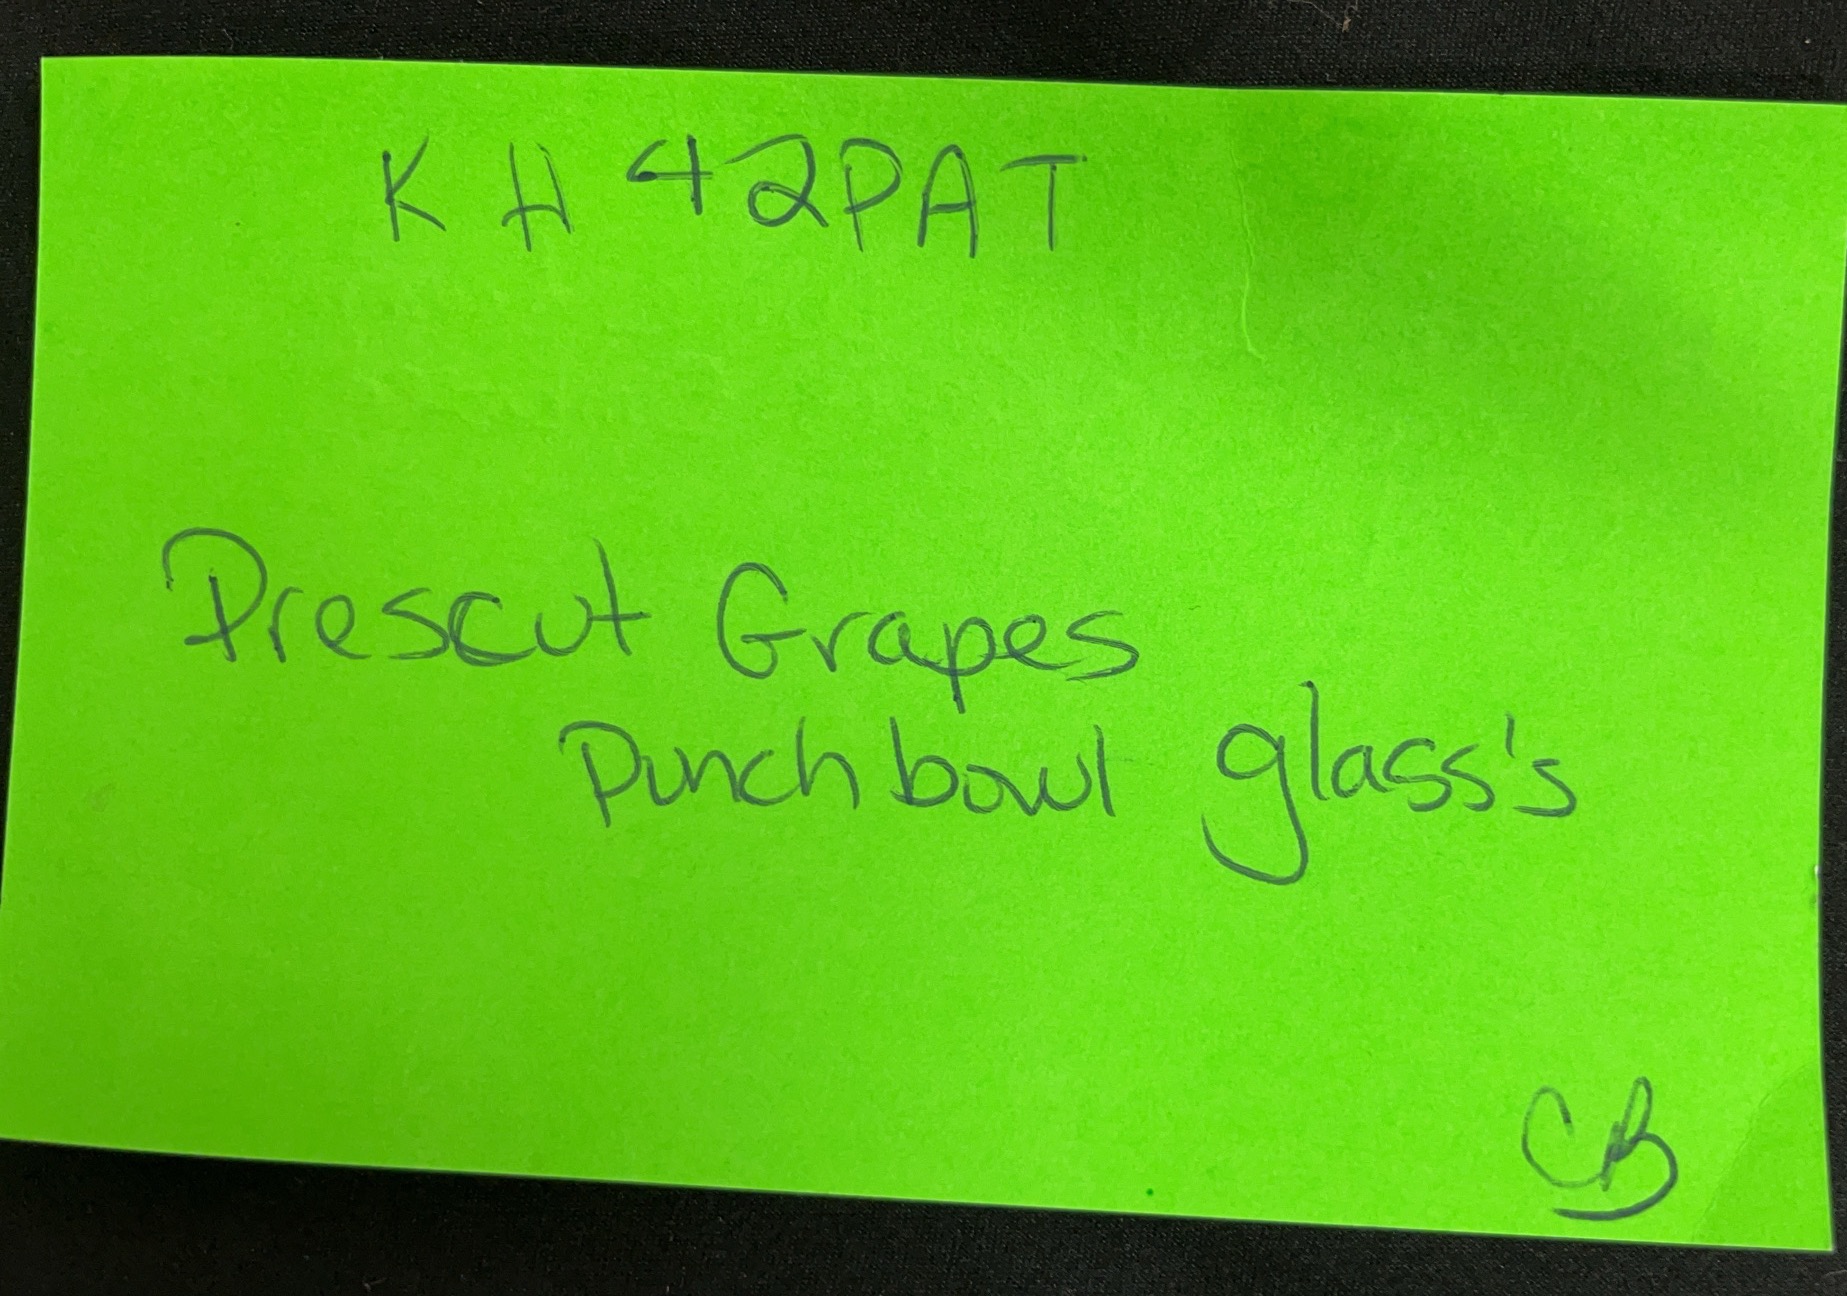 KH42PAT
Prescut Grapes
Punchbowl glass's
CB